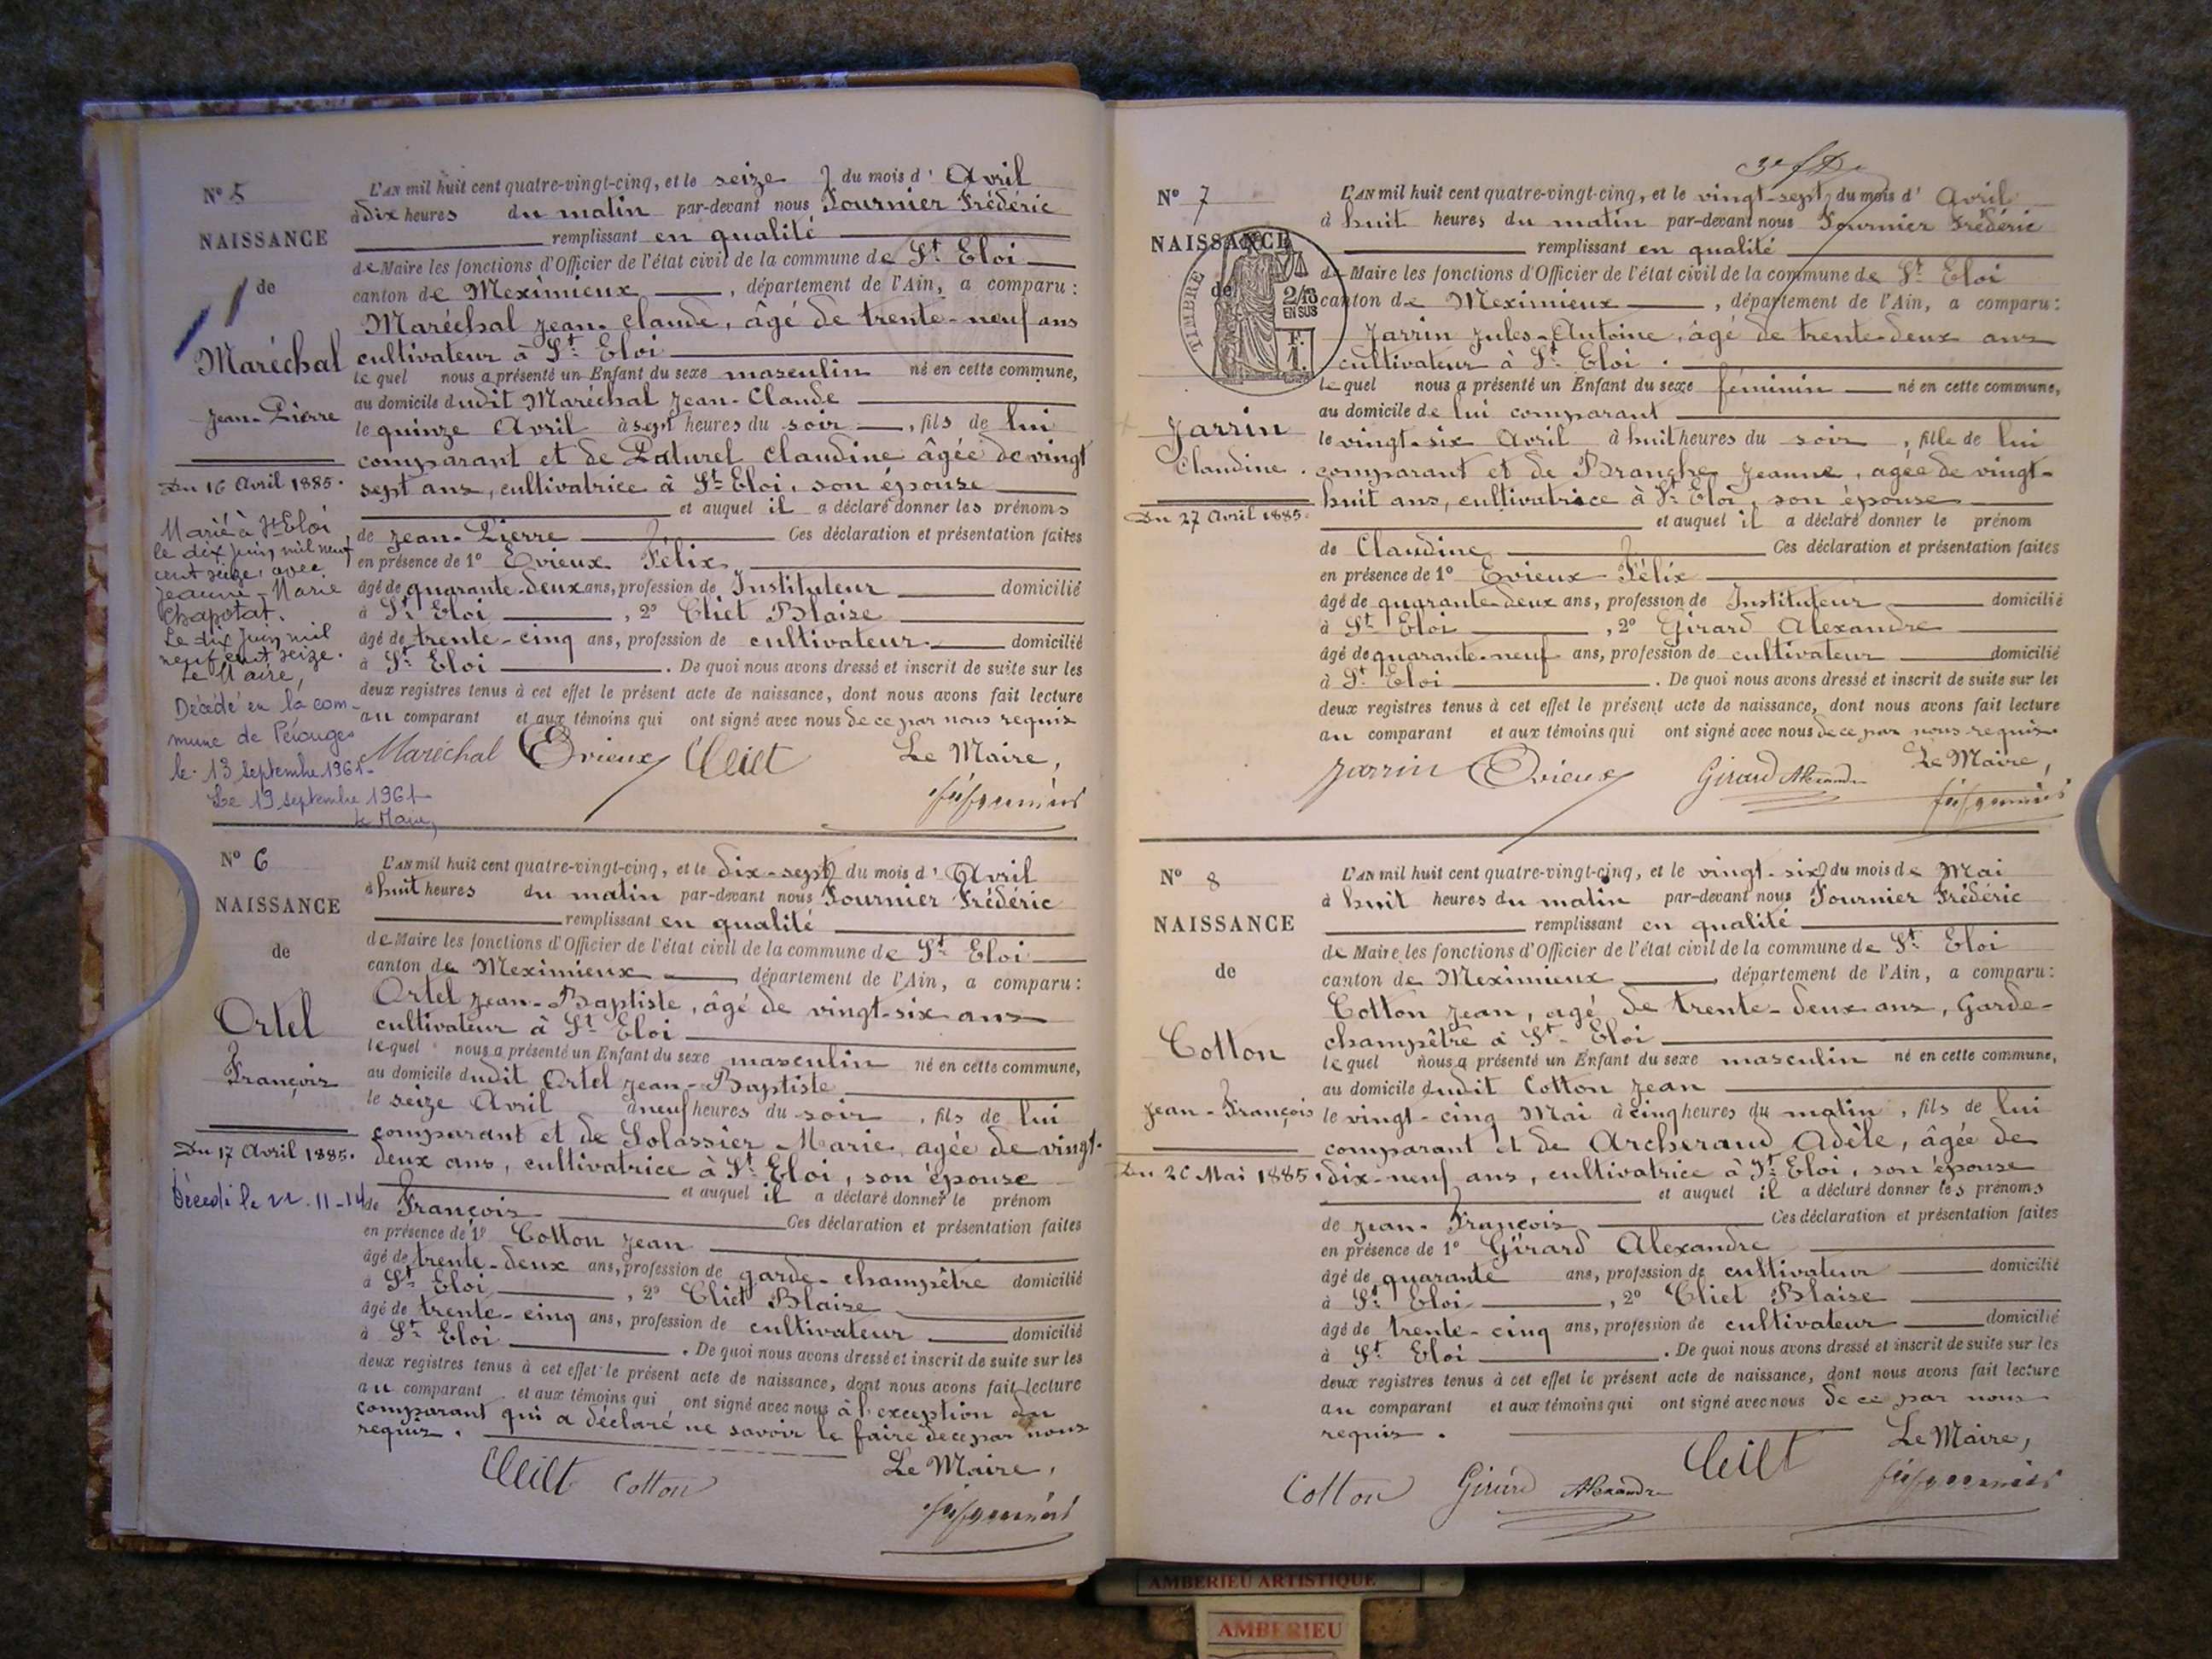 N° 5
NAISSANCE
de
Maréchal
Jean-Pierre
Du 16 Avril 1885.
Marié à St Eloi
le dix Juin mil neuf
cent seize, avec
Jeanne-Marie
Chapotat.
Le dix Juin mil
neuf cent seize.
Le Maire,
Décédé en la com-
mune de Pérouges
le 13 septembre 1961
Le 19 septembre 1961
Le Maire,
L'AN mil huit cent quatre-vingt-cinq, et le seize du mois d' Avril
à dix heures du matin par-devant nous Fournier Frédéric
remplissant en qualité
de Maire les fonctions d'Officier de l'état civil de la commune de St Eloi
canton de Meximieux, département de l'Ain, a comparu :
Maréchal Jean-Claude, âgé de trente-neuf ans
cultivateur à St Eloi
lequel nous a présenté un Enfant du sexe masculin né en cette commune,
au domicile dudit Maréchal Jean-Claude
le quinze Avril à sept heures du soir, fils de lui
comparant et de Paturel Claudine âgée de vingt
sept ans, cultivatrice à St Eloi, son épouse
et auquel il a déclaré donner les prénoms
de Jean-Pierre Ces déclaration et présentation faites
en présence de 1° Evieux Félix
âgé de quarante-deux ans, profession de Instituteur domicilié
à St Eloi, 2° Cliet Blaise
âgé de trente-cinq ans, profession de cultivateur domicilié
à St Eloi. De quoi nous avons dressé et inscrit de suite sur les
deux registres tenus à cet effet le présent acte de naissance, dont nous avons fait lecture
au comparant et aux témoins qui ont signé avec nous de ce par nous requis
Maréchal Evieux Cliet Le Maire,
N° 6
NAISSANCE
de
Ortel
François
Du 17 Avril 1885.
Décédé le 22-11-14
L'AN mil huit cent quatre-vingt-cinq, et le dix-sept du mois d' Avril
à huit heures du matin par-devant nous Fournier Frédéric
remplissant en qualité
de Maire les fonctions d'Officier de l'état civil de la commune de St Eloi
canton de Meximieux département de l'Ain, a comparu :
Ortel Jean-Baptiste, âgé de vingt-six ans
cultivateur à St Eloi
lequel nous a présenté un Enfant du sexe masculin né en cette commune,
au domicile dudit Ortel Jean-Baptiste
le seize Avril à neuf heures du soir, fils de lui
comparant et de Solassier Marie, agée de vingt-
deux ans, cultivatrice à St Eloi, son épouse
et auquel il a déclaré donner le prénom
de François Ces déclaration et présentation faites
en présence de 1° Cotton Jean
âgé de trente-deux ans, profession de garde-champêtre domicilié
à St Eloi, 2° Cliet Blaise
âgé de trente-cinq ans, profession de cultivateur domicilié
à St Eloi. De quoi nous avons dressé et inscrit de suite sur les
deux registres tenus à cet effet le présent acte de naissance, dont nous avons fait lecture
au comparant et aux témoins qui ont signé avec nous à l'exception du
comparant qui a déclaré ne savoir le faire de ce par nous
requis.
Cliet Cotton Le Maire,
N° 7
NAISSANCE
de
TIMBRE
2/10
EN SUS
F.
1.
Jarrin
Claudine.
Du 27 Avril 1885.
L'AN mil huit cent quatre-vingt-cinq, et le vingt-sept du mois d' Avril
à huit heures du matin par-devant nous Fournier Frédéric
remplissant en qualité
de Maire les fonctions d'Officier de l'état civil de la commune de St Eloi
canton de Meximieux, département de l'Ain, a comparu :
Jarrin Jules-Antoine, âgé de trente-deux ans
cultivateur à St Eloi.
lequel nous a présenté un Enfant du sexe féminin né en cette commune,
au domicile de lui comparant
le vingt-six Avril à huit heures du soir, fille de lui
comparant et de Branche Jeanne, agée de vingt-
huit ans, cultivatrice à St Eloi, son épouse
et auquel il a déclaré donner le prénom
de Claudine Ces déclaration et présentation faites
en présence de 1° Evieux Félix
âgé de quarante-deux ans, profession de Instituteur domicilié
à St Eloi, 2° Girard Alexandre
âgé de quarante-neuf ans, profession de cultivateur domicilié
à St Eloi. De quoi nous avons dressé et inscrit de suite sur les
deux registres tenus à cet effet le présent acte de naissance, dont nous avons fait lecture
au comparant et aux témoins qui ont signé avec nous de ce par nous requis.
Jarrin Evieux Girard Alexandre Le Maire,
N° 8
NAISSANCE
de
Cotton
Jean-François
Du 26 Mai 1885.
L'AN mil huit cent quatre-vingt-cinq, et le vingt-six du mois de Mai
à huit heures du matin par-devant nous Fournier Frédéric
remplissant en qualité
de Maire les fonctions d'Officier de l'état civil de la commune de St Eloi
canton de Meximieux, département de l'Ain, a comparu :
Cotton Jean, agé de trente-deux ans, Garde-
champêtre à St Eloi
lequel nous a présenté un Enfant du sexe masculin né en cette commune,
au domicile dudit Cotton Jean
le vingt-cinq Mai à cinq heures du matin, fils de lui
comparant et de Archeraud Adèle, âgée de
dix-neuf ans, cultivatrice à St Eloi, son épouse
et auquel il a déclaré donner les prénoms
de Jean-François Ces déclaration et présentation faites
en présence de 1° Girard Alexandre
âgé de quarante ans, profession de cultivateur domicilié
à St Eloi, 2° Cliet Blaise
âgé de trente-cinq ans, profession de cultivateur domicilié
à St Eloi. De quoi nous avons dressé et inscrit de suite sur les
deux registres tenus à cet effet le présent acte de naissance, dont nous avons fait lecture
au comparant et aux témoins qui ont signé avec nous de ce par nous
requis.
Cotton Girard Alexandre Cliet Le Maire,
AMBERIEU ARTISTIQUE
AMBERIEU